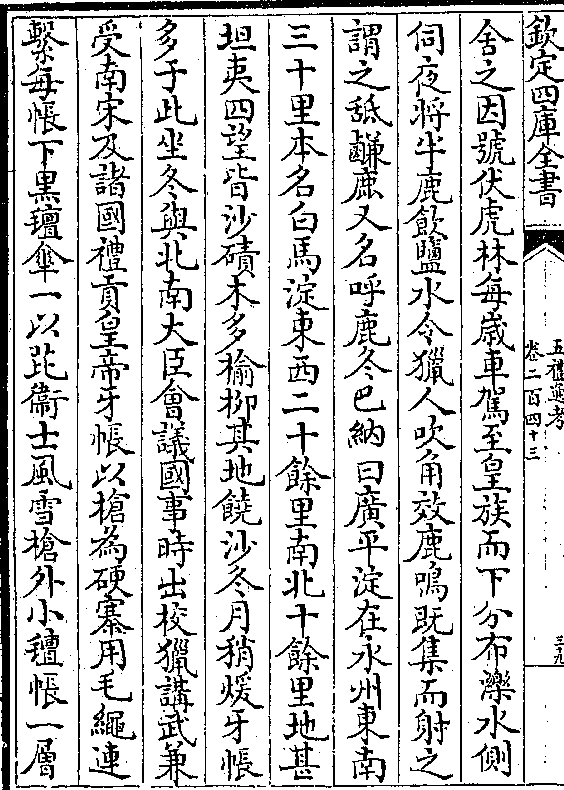 欽定四庫全書
五禮通考
卷二百四十三
三十九
舍之因號伏虎林每歲車駕至皇族而下分布濼水側
伺夜將半鹿飲鹽水令獵人吹角效鹿鳴既集而射之
謂之舐鹻鹿又名呼鹿冬巴納曰廣平淀在永州東南
三十里本名白馬淀東西二十餘里南北十餘里地甚
坦夷四望皆沙磧木多榆柳其地饒沙冬月稍煖牙帳
多于此坐冬與北南大臣會議國事時出校獵講武兼
受南宋及諸國禮貢皇帝牙帳以槍為硬寨用毛繩連
繫每帳下黑氊傘一以庇衞士風雪槍外小氊帳一層